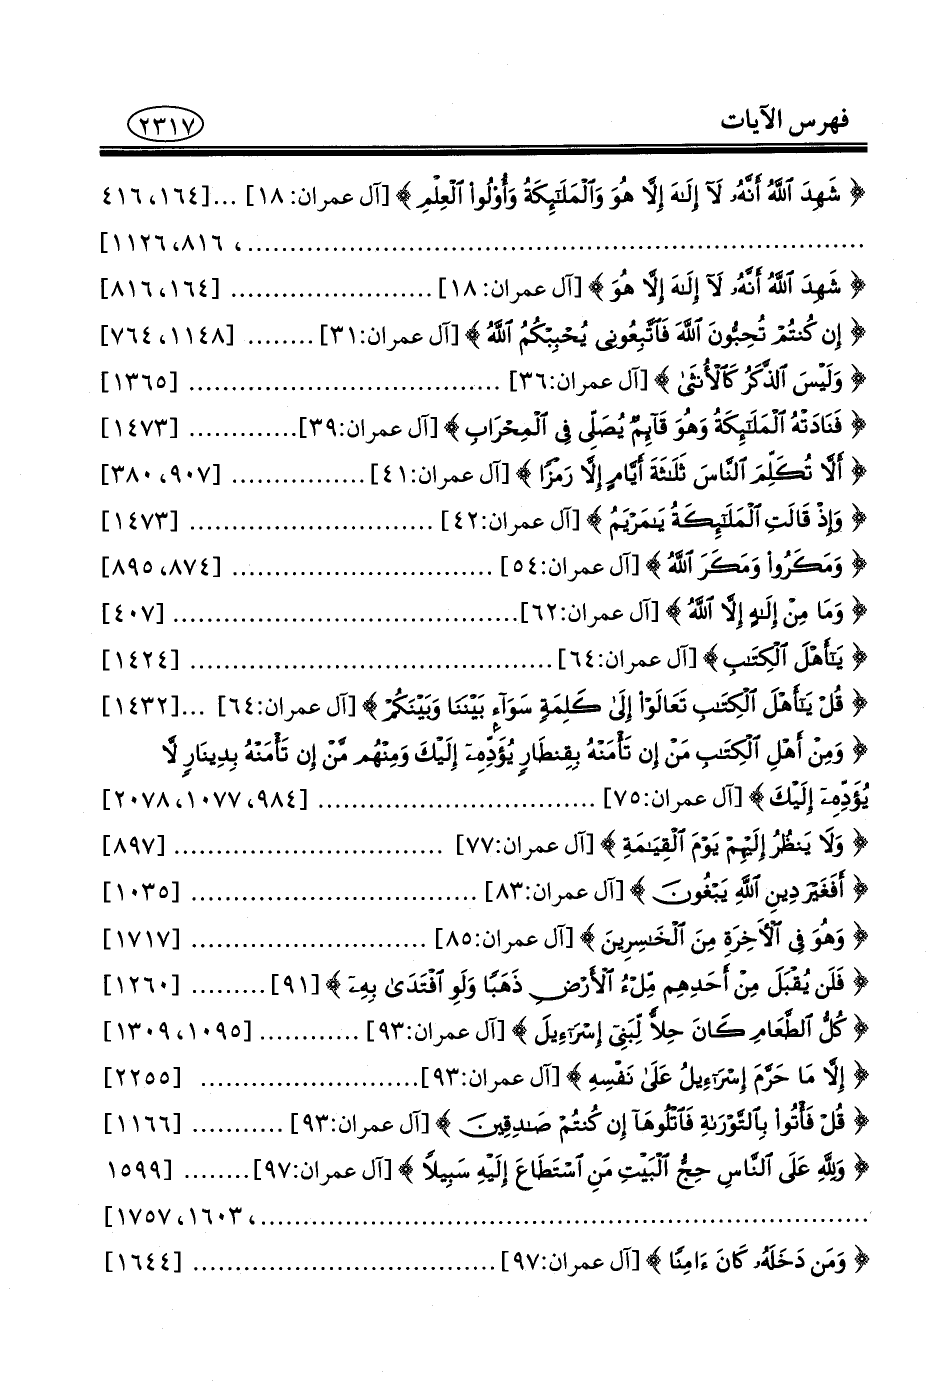 فهرس الآيات ٢٣١٧
﴿ شَهِدَ ٱللَّهُ أَنَّهُۥ لَآ إِلَٰهَ إِلَّا هُوَ وَٱلْمَلَٰٓئِكَةُ وَأُوْلُوا۟ ٱلْعِلْمِ ﴾ [آل عمران: ١٨] ...[١٦٤، ٤١٦
..........................................................................، ٨١٦، ١١٢٦]
﴿ شَهِدَ ٱللَّهُ أَنَّهُۥ لَآ إِلَٰهَ إِلَّا هُوَ ﴾ [آل عمران: ١٨] ........................ [١٦٤، ٨١٦]
﴿ إِن كُنتُمْ تُحِبُّونَ ٱللَّهَ فَٱتَّبِعُونِى يُحْبِبْكُمُ ٱللَّهُ ﴾ [آل عمران:٣١] ........ [١١٤٨، ٧٦٤]
﴿ وَلَيْسَ ٱلذَّكَرُ كَٱلْأُنثَىٰ ﴾ [آل عمران:٣٦] ..................................... [١٣٦٥]
﴿ فَنَادَتْهُ ٱلْمَلَٰٓئِكَةُ وَهُوَ قَآئِمٌ يُصَلِّى فِى ٱلْمِحْرَابِ ﴾ [آل عمران:٣٩]............. [١٤٧٣]
﴿ أَلَّا تُكَلِّمَ ٱلنَّاسَ ثَلَٰثَةَ أَيَّامٍ إِلَّا رَمْزًا ﴾ [آل عمران:٤١] ................ [٩٠٧، ٣٨٠]
﴿ وَإِذْ قَالَتِ ٱلْمَلَٰٓئِكَةُ يَٰمَرْيَمُ ﴾ [آل عمران:٤٢] ............................. [١٤٧٣]
﴿ وَمَكَرُوا۟ وَمَكَرَ ٱللَّهُ ﴾ [آل عمران:٥٤] ............................... [٨٧٤، ٨٩٥]
﴿ وَمَا مِنْ إِلَٰهٍ إِلَّا ٱللَّهُ ﴾ [آل عمران:٦٢]......................................... [٤٠٧]
﴿ يَٰٓأَهْلَ ٱلْكِتَٰبِ ﴾ [آل عمران:٦٤] ........................................... [١٤٢٤]
﴿ قُلْ يَٰٓأَهْلَ ٱلْكِتَٰبِ تَعَالَوْا۟ إِلَىٰ كَلِمَةٍ سَوَآءٍۭ بَيْنَنَا وَبَيْنَكُمْ ﴾ [آل عمران:٦٤] ...[١٤٣٢]
﴿ وَمِنْ أَهْلِ ٱلْكِتَٰبِ مَنْ إِن تَأْمَنْهُ بِقِنطَارٍ يُؤَدِّهِۦٓ إِلَيْكَ وَمِنْهُم مَّنْ إِن تَأْمَنْهُ بِدِينَارٍ لَّا
يُؤَدِّهِۦٓ إِلَيْكَ ﴾ [آل عمران:٧٥] ................................. [٩٨٤، ١٠٧٧، ٢٠٧٨]
﴿ وَلَا يَنظُرُ إِلَيْهِمْ يَوْمَ ٱلْقِيَٰمَةِ ﴾ [آل عمران:٧٧] ................................ [٨٩٧]
﴿ أَفَغَيْرَ دِينِ ٱللَّهِ يَبْغُونَ ﴾ [آل عمران:٨٣] .................................. [١٠٣٥]
﴿ وَهُوَ فِى ٱلْأَخِرَةِ مِنَ ٱلْخَٰسِرِينَ ﴾ [آل عمران:٨٥] ............................ [١٧١٧]
﴿ فَلَن يُقْبَلَ مِنْ أَحَدِهِم مِّلْءُ ٱلْأَرْضِ ذَهَبًا وَلَوِ ٱفْتَدَىٰ بِهِۦٓ ﴾ [٩١] ......... [١٢٦٠]
﴿ كُلُّ ٱلطَّعَامِ كَانَ حِلًّا لِّبَنِىٓ إِسْرَٰٓءِيلَ ﴾ [آل عمران:٩٣] ............ [١٠٩٥، ١٣٠٩]
﴿ إِلَّا مَا حَرَّمَ إِسْرَٰٓءِيلُ عَلَىٰ نَفْسِهِ ﴾ [آل عمران:٩٣].......................... [٢٢٥٥]
﴿ قُلْ فَأْتُوا۟ بِٱلتَّوْرَىٰةِ فَٱتْلُوهَآ إِن كُنتُمْ صَٰدِقِينَ ﴾ [آل عمران:٩٣] ........... [١١٦٦]
﴿ وَلِلَّهِ عَلَى ٱلنَّاسِ حِجُّ ٱلْبَيْتِ مَنِ ٱسْتَطَاعَ إِلَيْهِ سَبِيلًا ﴾ [آل عمران:٩٧]........ [١٥٩٩
..........................................................................، ١٦٠٣، ١٧٥٧]
﴿ وَمَن دَخَلَهُۥ كَانَ ءَامِنًا ﴾ [آل عمران:٩٧].................................... [١٦٤٤]